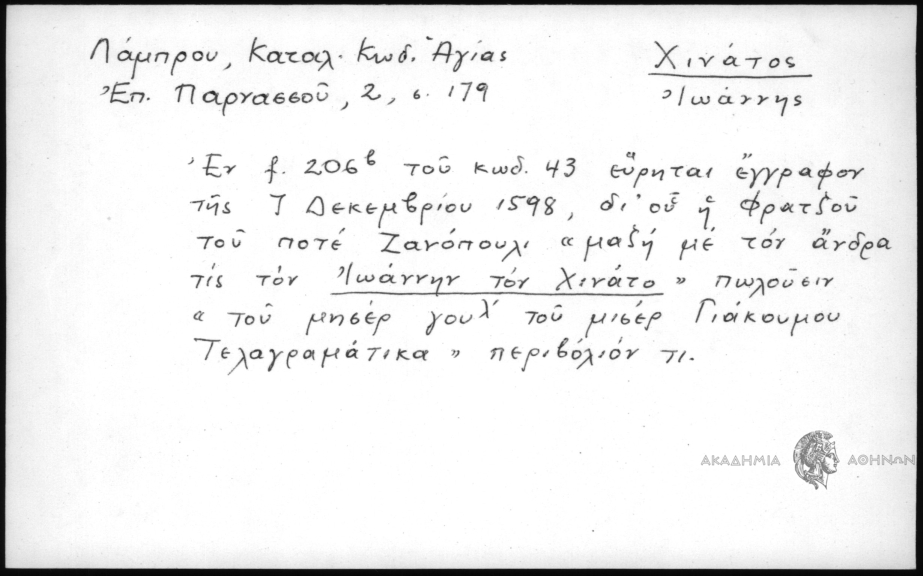 Λάμπρου, Καταλ. Κωδ. Ἁγίας
Ἐπ. Παρνασσοῦ, 2, σ. 179
Χινάτος
Ἰωάννης
Ἐν f. 206β τοῦ κωδ. 43 εὕρηται ἔγγραφον
τῆς 7 Δεκεμβρίου 1598, δι' οὗ ἡ Φρατζοῦ
τοῦ ποτέ Ζανόπουλι « μαζή μέ τόν ἄνδρα
τις τόν Ἰωάννην τόν Χινάτο » πωλοῦσιν
« τοῦ μησέρ γουλ τοῦ μισέρ Γιάκουμου
Τελαγραμάτικα » περιβόλιόν τι.
ΑΚΑΔΗΜΙΑ ΑΘΗΝΩΝ